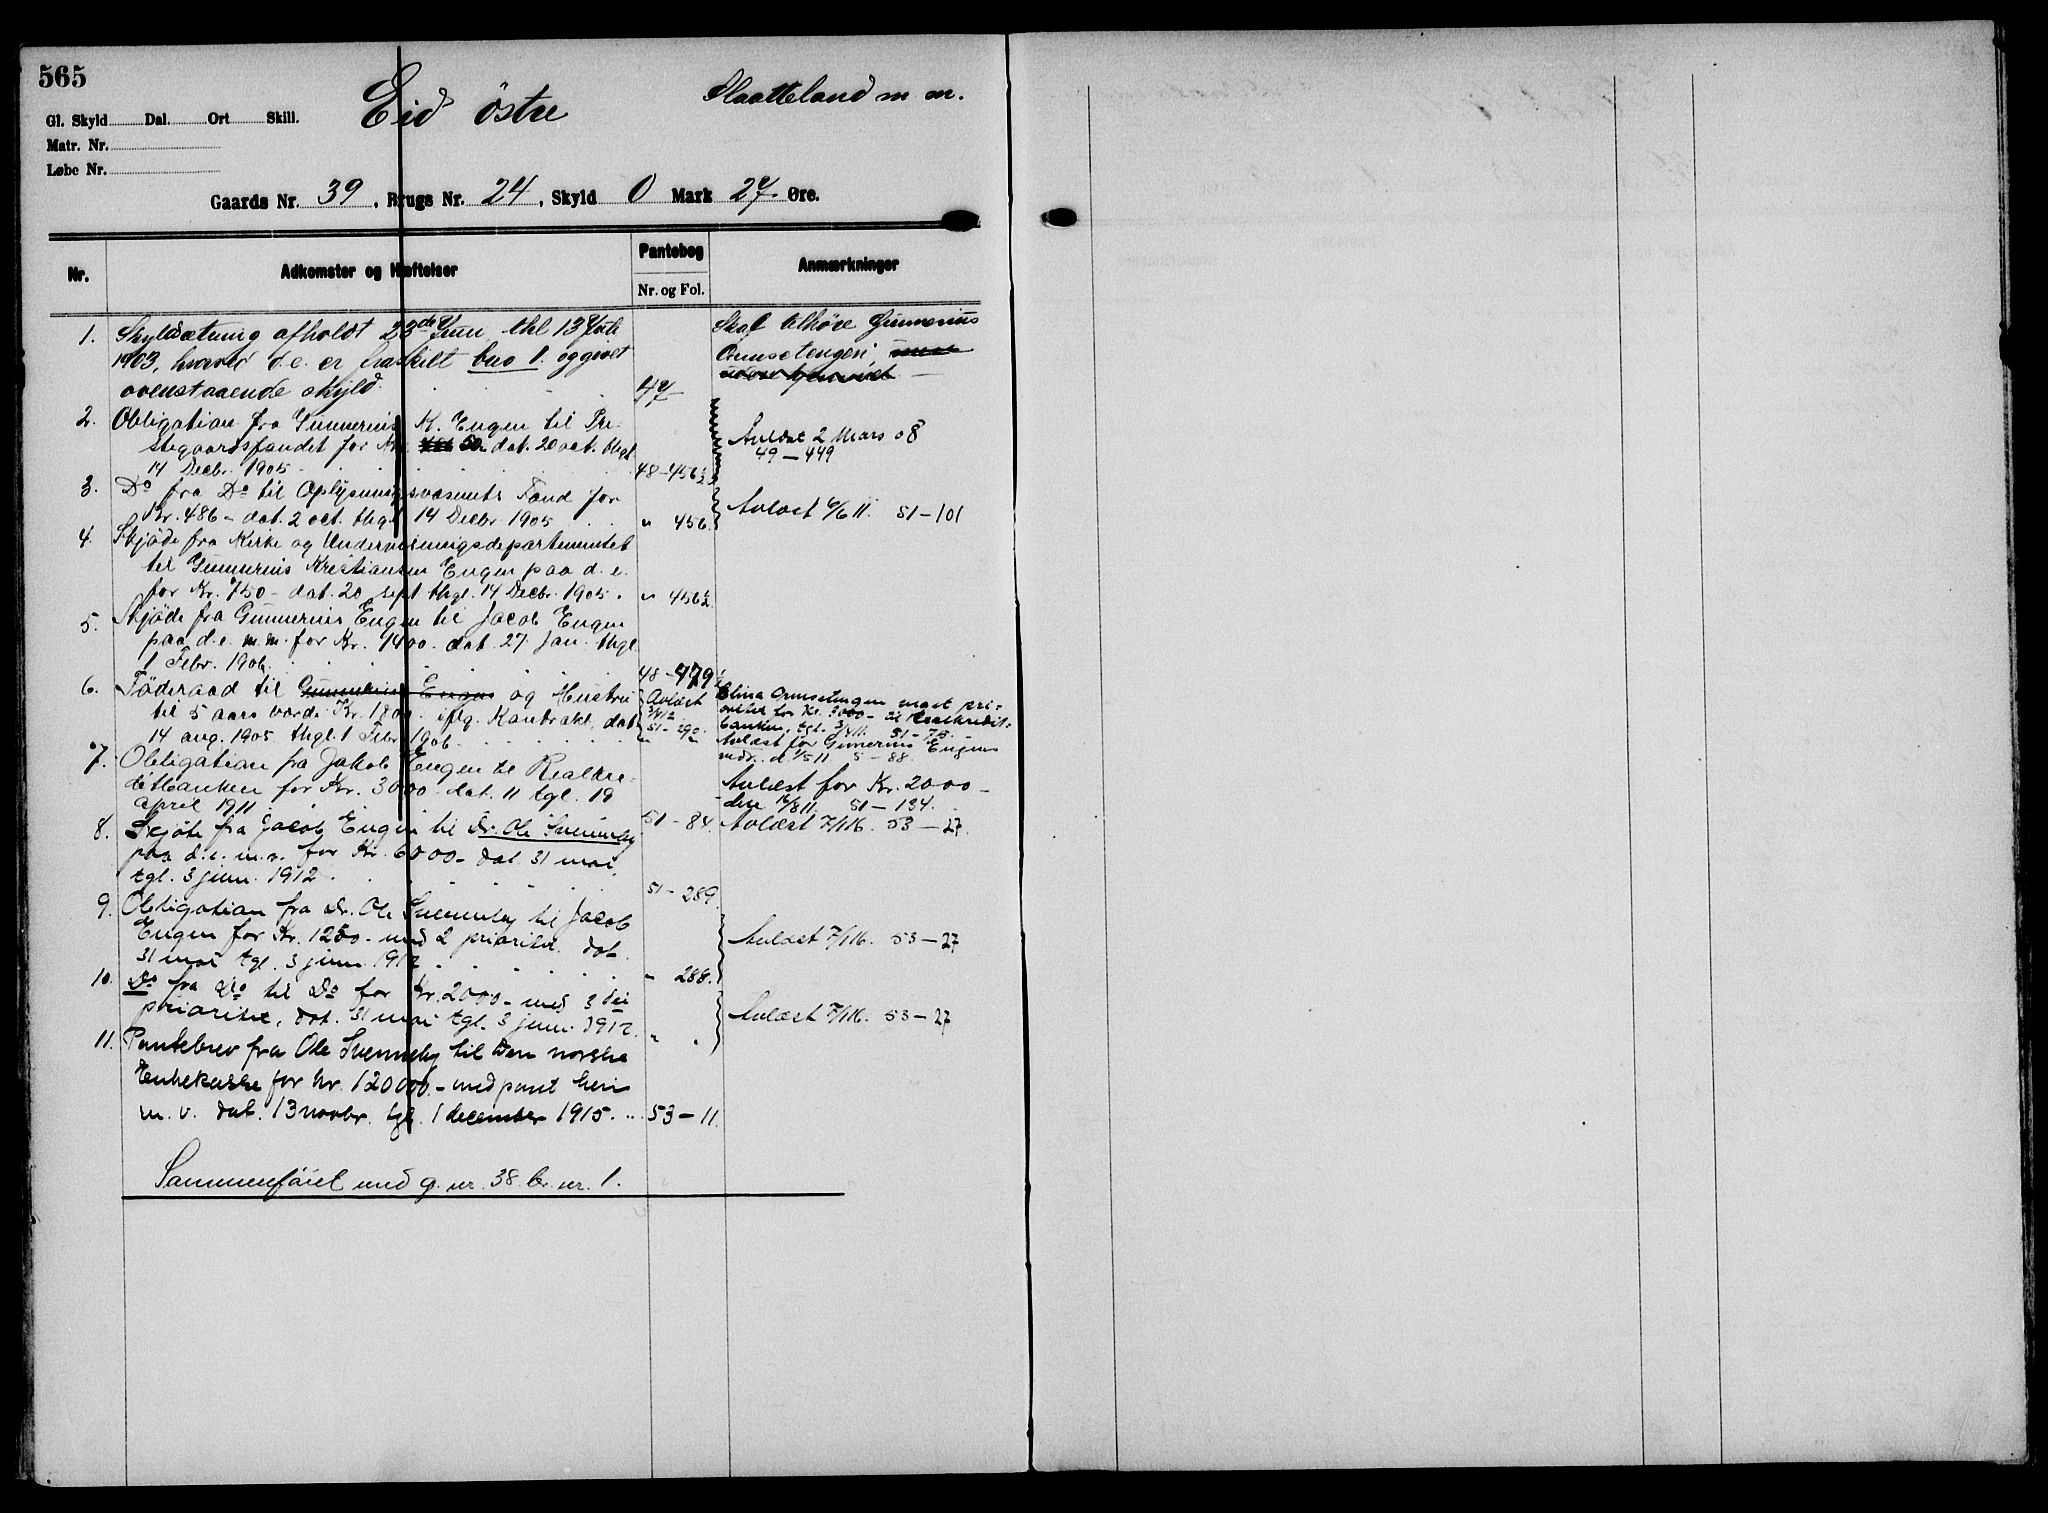 565
Eid östre
Slaatteland m m.
Gl. Skyld Dal. Ort Skill.
Matr. Nr.
Løbe Nr.
Gaards Nr. 39, Brugs Nr. 24, Skyld 0 Mark 27 Øre.
Nr. Adkomster og Hæftelser Pantebog Anmærkninger
Nr. og Fol.
1. Skyldsætning afholdt 23de Juni thl 13 Juli
1903, hvorved d. e. er fraskilt bno 1. og givet
ovenstaaende skyld. 47
Skal tilhöre Gunnerius
Ormsetengen,
2. Obligation fra Gunnerius K. Engen til Pre-
stegaardsfondet for Kr. dat. 20 oct. thgl.
14 Decbr. 1905 48-456½
Avlæst 2 Mars 08
49-449
3. Do fra Do til Oplysningsvæsenets Fond for
Kr. 486- dat. 2 oct. thgl 14 Decbr. 1905 " 456.
Avlæst 6/6 11. 51-101
4. Skjöde fra Kirke og Undervisningsdepartementet
til Gunnerius Kristiansen Engen paa d. e.
for Kr. 750- dat. 20 sept thgl. 14 Decbr. 1905. " 456½
5. Skjöde fra Gunnerius Engen til Jacob Engen
paa d. e. m. m. for Kr. 1400. dat. 27. Jan. thgl
1 Febr. 1906. 48-479½
6. Föderaad til Gunnerius Engen og Hustru
til 5 aars værdi Kr. 1800. iflg. Kontrakt, dat
14 aug. 1905 thgl. 1 Febr 1906. " "
Avlæst
51-290.
Elina Ormsetengen mast pri-
oritet for Kr. 3000- til Realkredit-
banken, tgl. 3/4 11. 51-78.
Avlæst for Gunnerius Engens
vedk. d. 1/5 11 5-88.
7. Obligation fra Jakob Engen til Realkre-
ditbanken for Kr. 3000- dat. 11 tgl. 19
april 1911. 51-84.
Avlæst for Kr. 2000-
den 16/8 11. 51-134.
Avlæst 7/1 16. 53-27.
8. Skjöte fra Jacob Engen til Dr. Ole Svenneby
paa d. e. m. v. for Kr. 6000- dat. 31 mai,
tgl. 3 juni. 1912. 51-289.
9. Obligation fra Dr. Ole Svenneby til Jacob
Engen for Kr. 1250- med 2 prioritet. dat.
31 mai tgl. 3 juni 1912. " 288.
Avlæst 7/1 16. 53-27
10. Do fra Do til Do for Kr. 2000- med 3die
prioritet, dat. 31 mai tgl. 3 juni. 1912. " "
Avlæst 7/1 16. 53-27
11. Pantebrev fra Ole Svenneby til Den norske
Enkekasse for kr. 120000.- med pant heri
m. v. dat. 13 novbr. tgl. 1 december 1915. 53-11.
Sammenföiet med g. nr. 38. br. nr. 1.